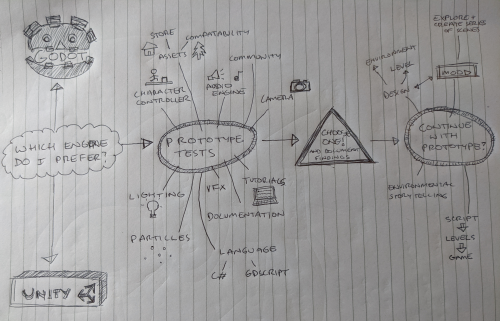 GODOT
WHICH ENGINE
DO I PREFER?
UNITY
STORE
ASSETS
COMPATABILITY
COMMUNITY
CHARACTER
CONTROLLER
AUDIO
ENGINE
CAMERA
PROTOTYPE
TESTS
LIGHTING
VFX
TUTORIALS
DOCUMENTATION
PARTICLES
LANGUAGE
C#
GDSCRIPT
CHOOSE
ONE!
AND DOCUMENT
FINDINGS
EXPLORE +
CREATE SERIES
OF SCENES
MOOD
ENVIRONMENT
LEVEL
DESIGN
CONTINUE
WITH
PROTOTYPE?
ENVIRONMENTAL
STORYTELLING
SCRIPT
LEVELS
GAME